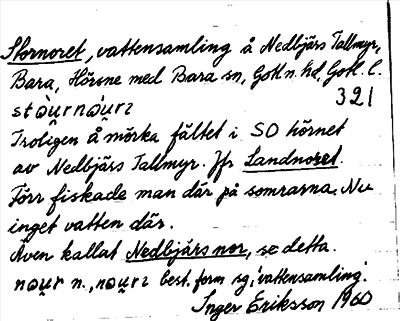 Stornoret, vattensamling å Nedbjärs Tallmyr,
Bara, Hörsne med Bara sn, Gotl. n. hd, Gotl. l.
321
stòu̯rnòu̯rɩ
Troligen å mörka fältet i SO hörnet
av Nedbjärs Tallmyr. Jfr Landnoret.
Förr fiskade man där på somrarna. Nu
inget vatten där.
Även kallat Nedbjärs nor, se detta.
nou̯r n., nou̯rɩ best. form sg. 'vattensamling'.
Inger Eriksson 1960